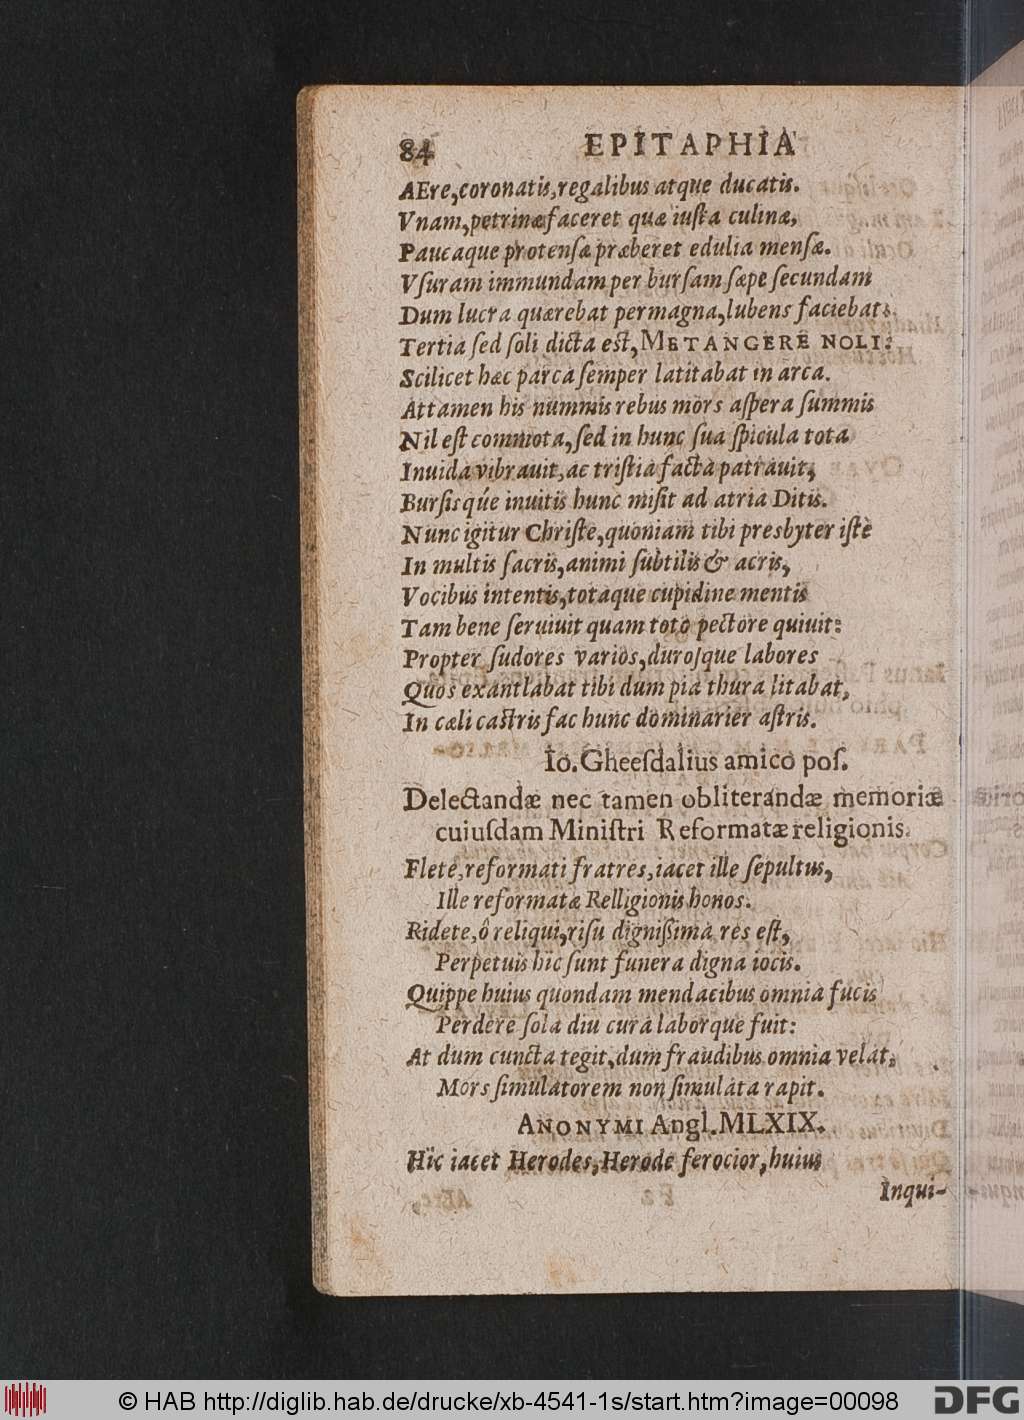 84 EPITAPHIA
AEre, coronatis, regalibus atque ducatis.
Vnam, petrinæ faceret quæ iuſta culinæ,
Paucaque protenſæ præberet edulia menſæ.
Vſuram immundam per burſam ſæpe ſecundam
Dum lucra quærebat permagna, lubens faciebat:
Tertia ſed ſoli dicta eſt, METANGERE NOLI:
Scilicet hæc parca ſemper latitabat in arca.
Attamen his nummis rebus mors aſpera ſummis
Nil eſt commota, ſed in hunc ſua ſpicula tota
Inuida vibrauit, ac triſtia facta patrauit,
Burſisqúe inuitis hunc miſit ad atria Ditis.
Nunc igitur Chriſte, quoniam tibi presbyter iſte
In multis ſacris, animi ſubtilis & acris,
Vocibus intentis, totaque cupidine mentis
Tam bene ſeruiuit quam toto pectore quiuit:
Propter ſudores varios, duroſque labores
Quos exantlabat tibi dum pia thura litabat,
In cæli caſtris fac hunc dominarier aſtris.
Io. Gheeſdalius amico poſ.
Delectandæ nec tamen obliterandæ memoriæ
cuiuſdam Miniſtri Reformatæ religionis.
Flete, reformati fratres, iacet ille ſepultus,
Ille reformatæ Relligionis honos.
Ridete, ô reliqui, riſu digniſſima res eſt,
Perpetuis hîc ſunt funera digna iocis.
Quippe huius quondam mendacibus omnia fucis
Perdere ſola diu cura laborque fuit:
At dum cuncta tegit, dum fraudibus omnia velat,
Mors ſimulatorem non ſimulata rapit.
ANONYMI Angl. MLXIX.
Hîc iacet Herodes, Herode ferocior, huius
Inqui-
© HAB http://diglib.hab.de/drucke/xb-4541-1s/start.htm?image=00098
DFG